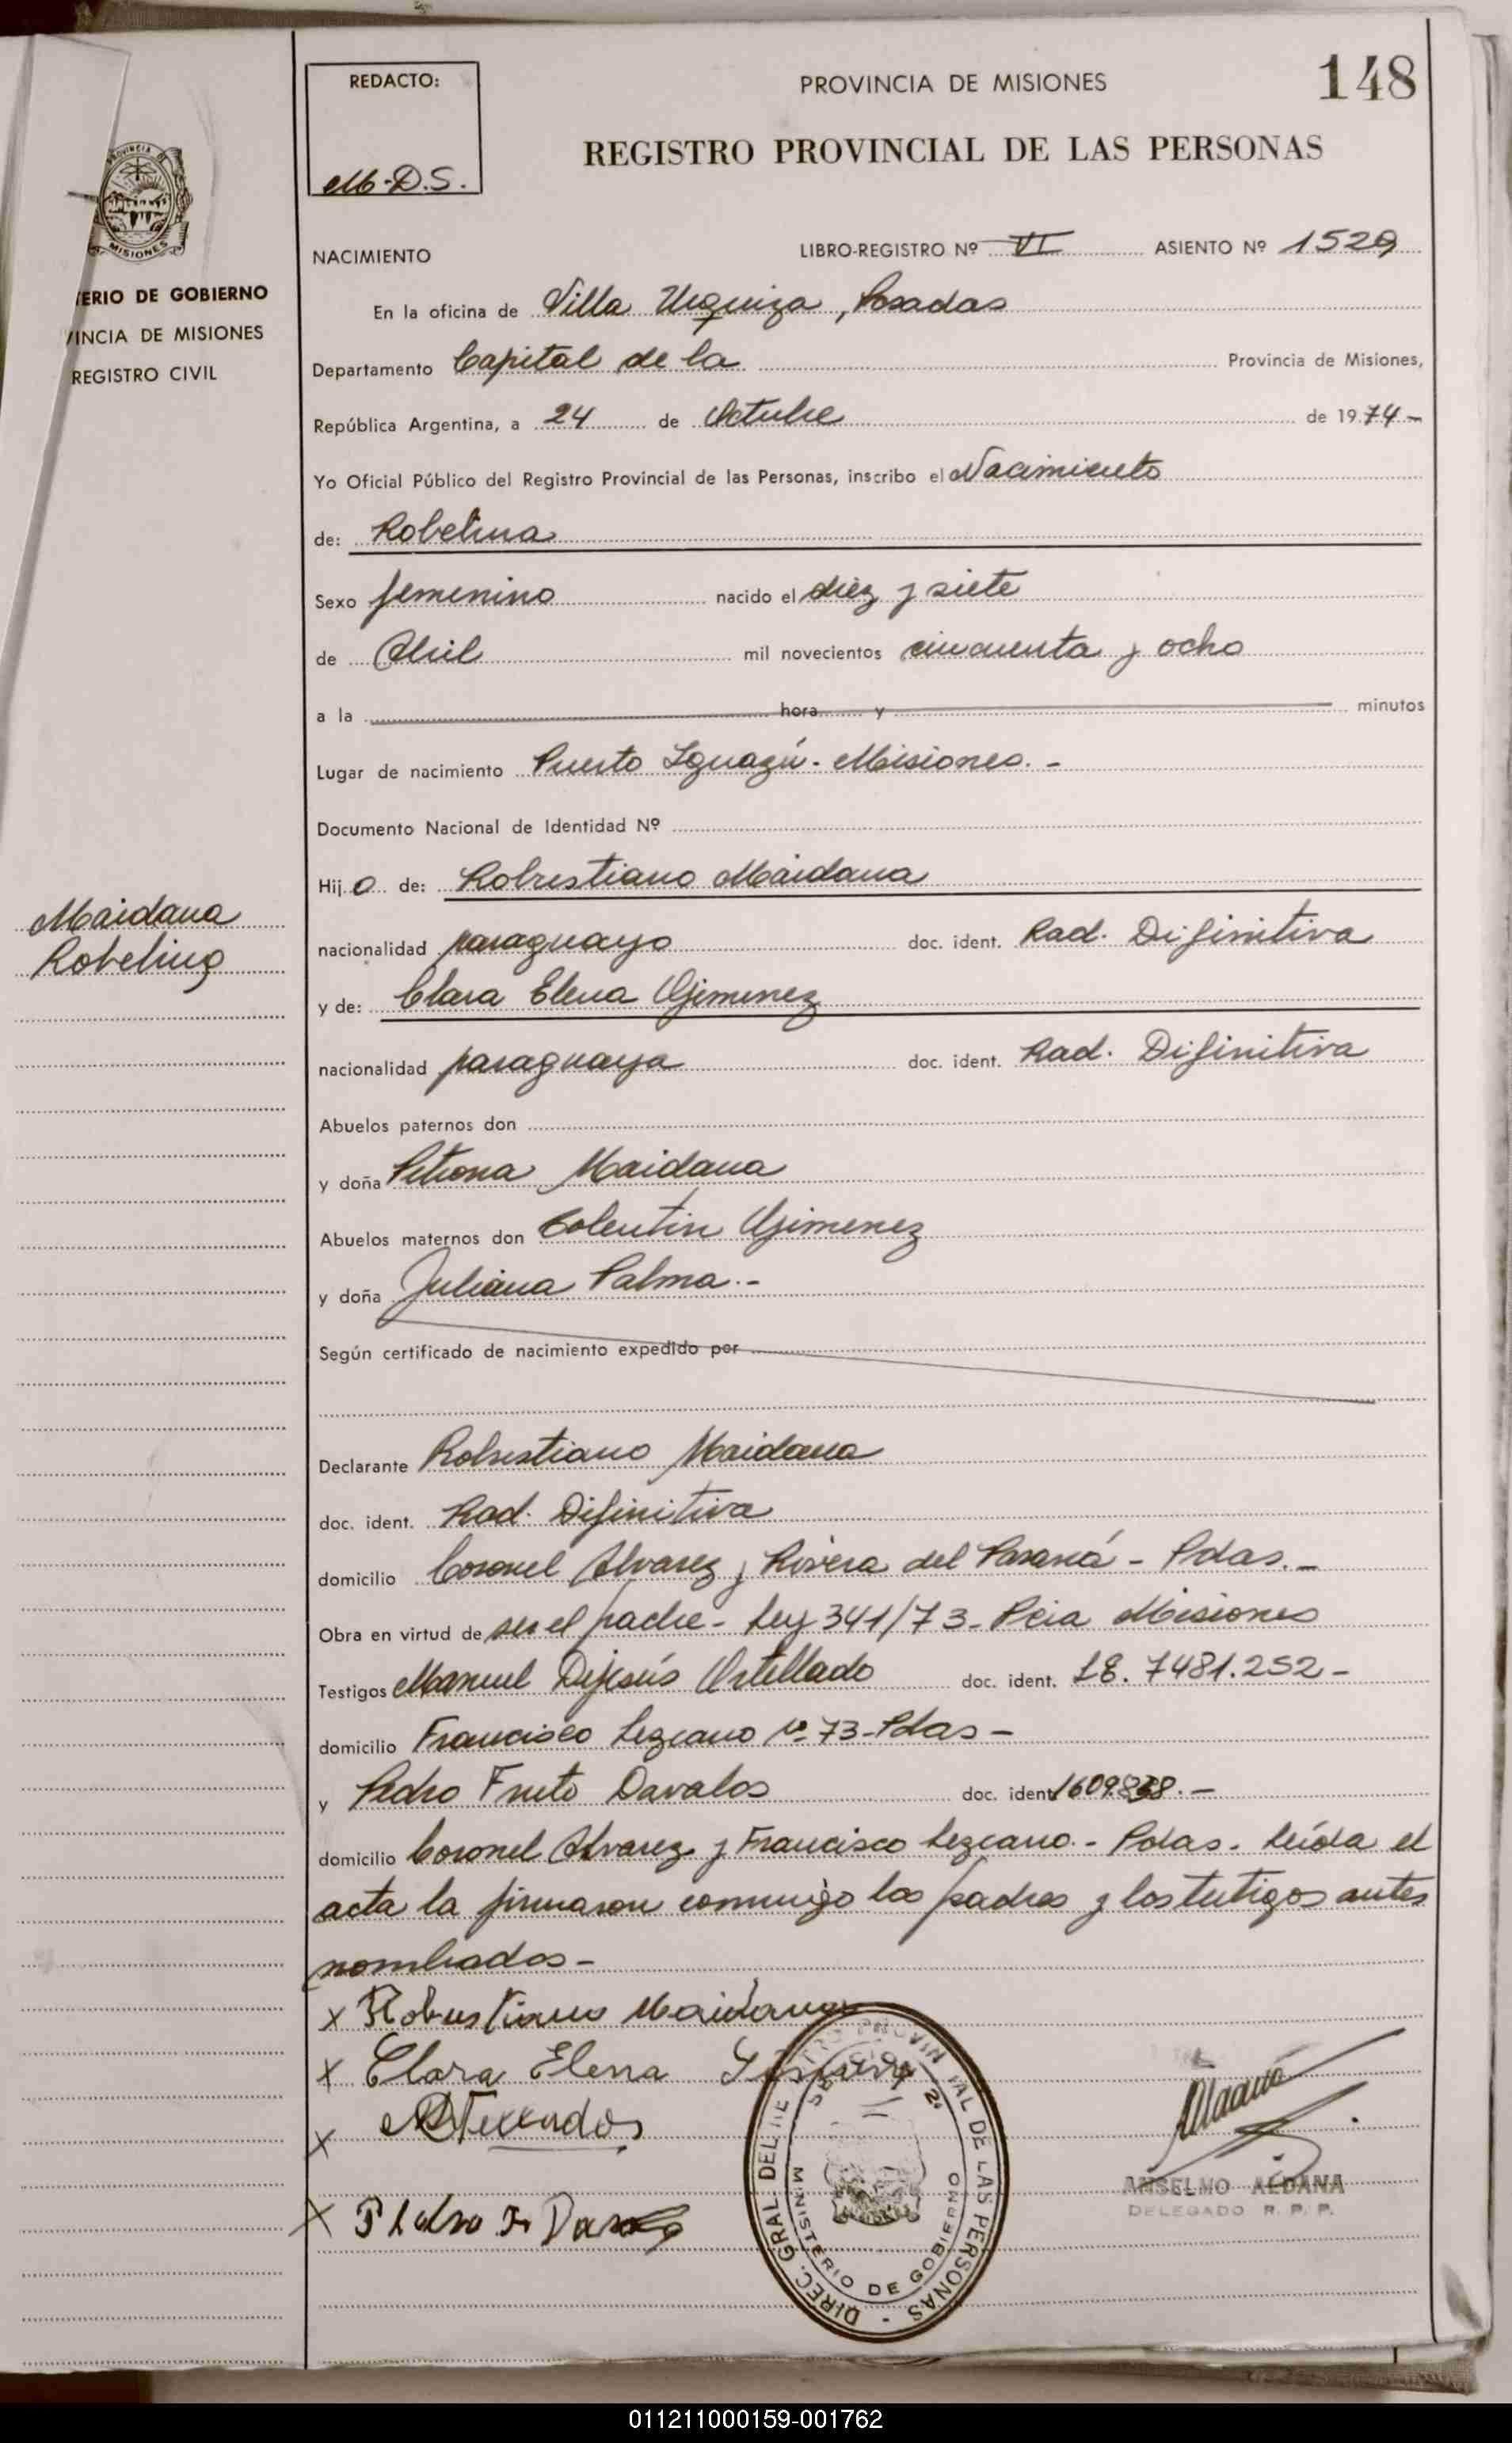 148
REDACTO:
M.D.S.
PROVINCIA DE MISIONES
REGISTRO PROVINCIAL DE LAS PERSONAS
PROVINCIA
MISIONES
ERIO DE GOBIERNO
INCIA DE MISIONES
REGISTRO CIVIL
NACIMIENTO LIBRO-REGISTRO Nº VI ASIENTO Nº 1529
En la oficina de Villa Urquiza, Posadas
Departamento Capital de la Provincia de Misiones,
República Argentina, a 24 de Octubre de 1974.-
Yo Oficial Público del Registro Provincial de las Personas, inscribo el Nacimiento
de: Robelina
Sexo femenino nacido el diez y siete
de Abril mil novecientos cincuenta y ocho
a la hora y minutos
Lugar de nacimiento Puerto Iguazú - Misiones.-
Documento Nacional de Identidad Nº
Hijo de: Robustiano Maidana
Maidana
Robelina
nacionalidad paraguayo doc. ident. Rad. Difinitiva
y de: Clara Elena Gimenez
nacionalidad paraguaya doc. ident. Rad. Difinitiva
Abuelos paternos don
y doña Petrona Maidana
Abuelos maternos don Colentin Gimenez
y doña Juliana Palma.-
Según certificado de nacimiento expedido por
Declarante Robustiano Maidana
doc. ident. Rad. Difinitiva
domicilio Coronel Alvarez y Rivera del Paraná - Pdas.-
Obra en virtud de ser el padre - Ley 341/73 - Pcia Misiones
Testigos Manuel Dejesús Ortellado doc. ident. L8. 7481.252-
domicilio Francisco Lezcano Nº 73-Pdas-
y Pedro Fruto Davalos doc. ident.
domicilio Coronel Alvarez y Francisco Lezcano.- Pdas. Leída el
acta la firmaron conmigo los padres y los testigos antes
nombrados-
x Robustiano Maidana
x Clara Elena
x
x Pedro F.
DIREC. GRAL. DEL REGISTRO PROVINCIAL DE LAS PERSONAS -
MINISTERIO DE GOBIERNO
ANSELMO ALDANA
DELEGADO R. P. P.
011211000159-001762